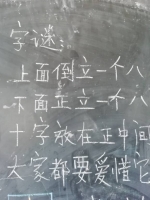 字谜：
上面倒立一个八
下面正立一个八
十字放在正中间
大家都要爱惜它